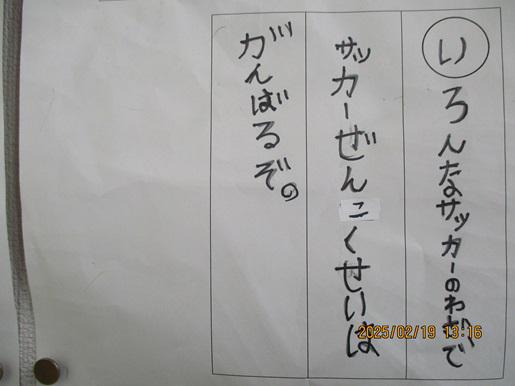 いろんなサッカーのわざで
サッカーぜんこくせいは
がんばるぞ。
2025/02/19 13:16